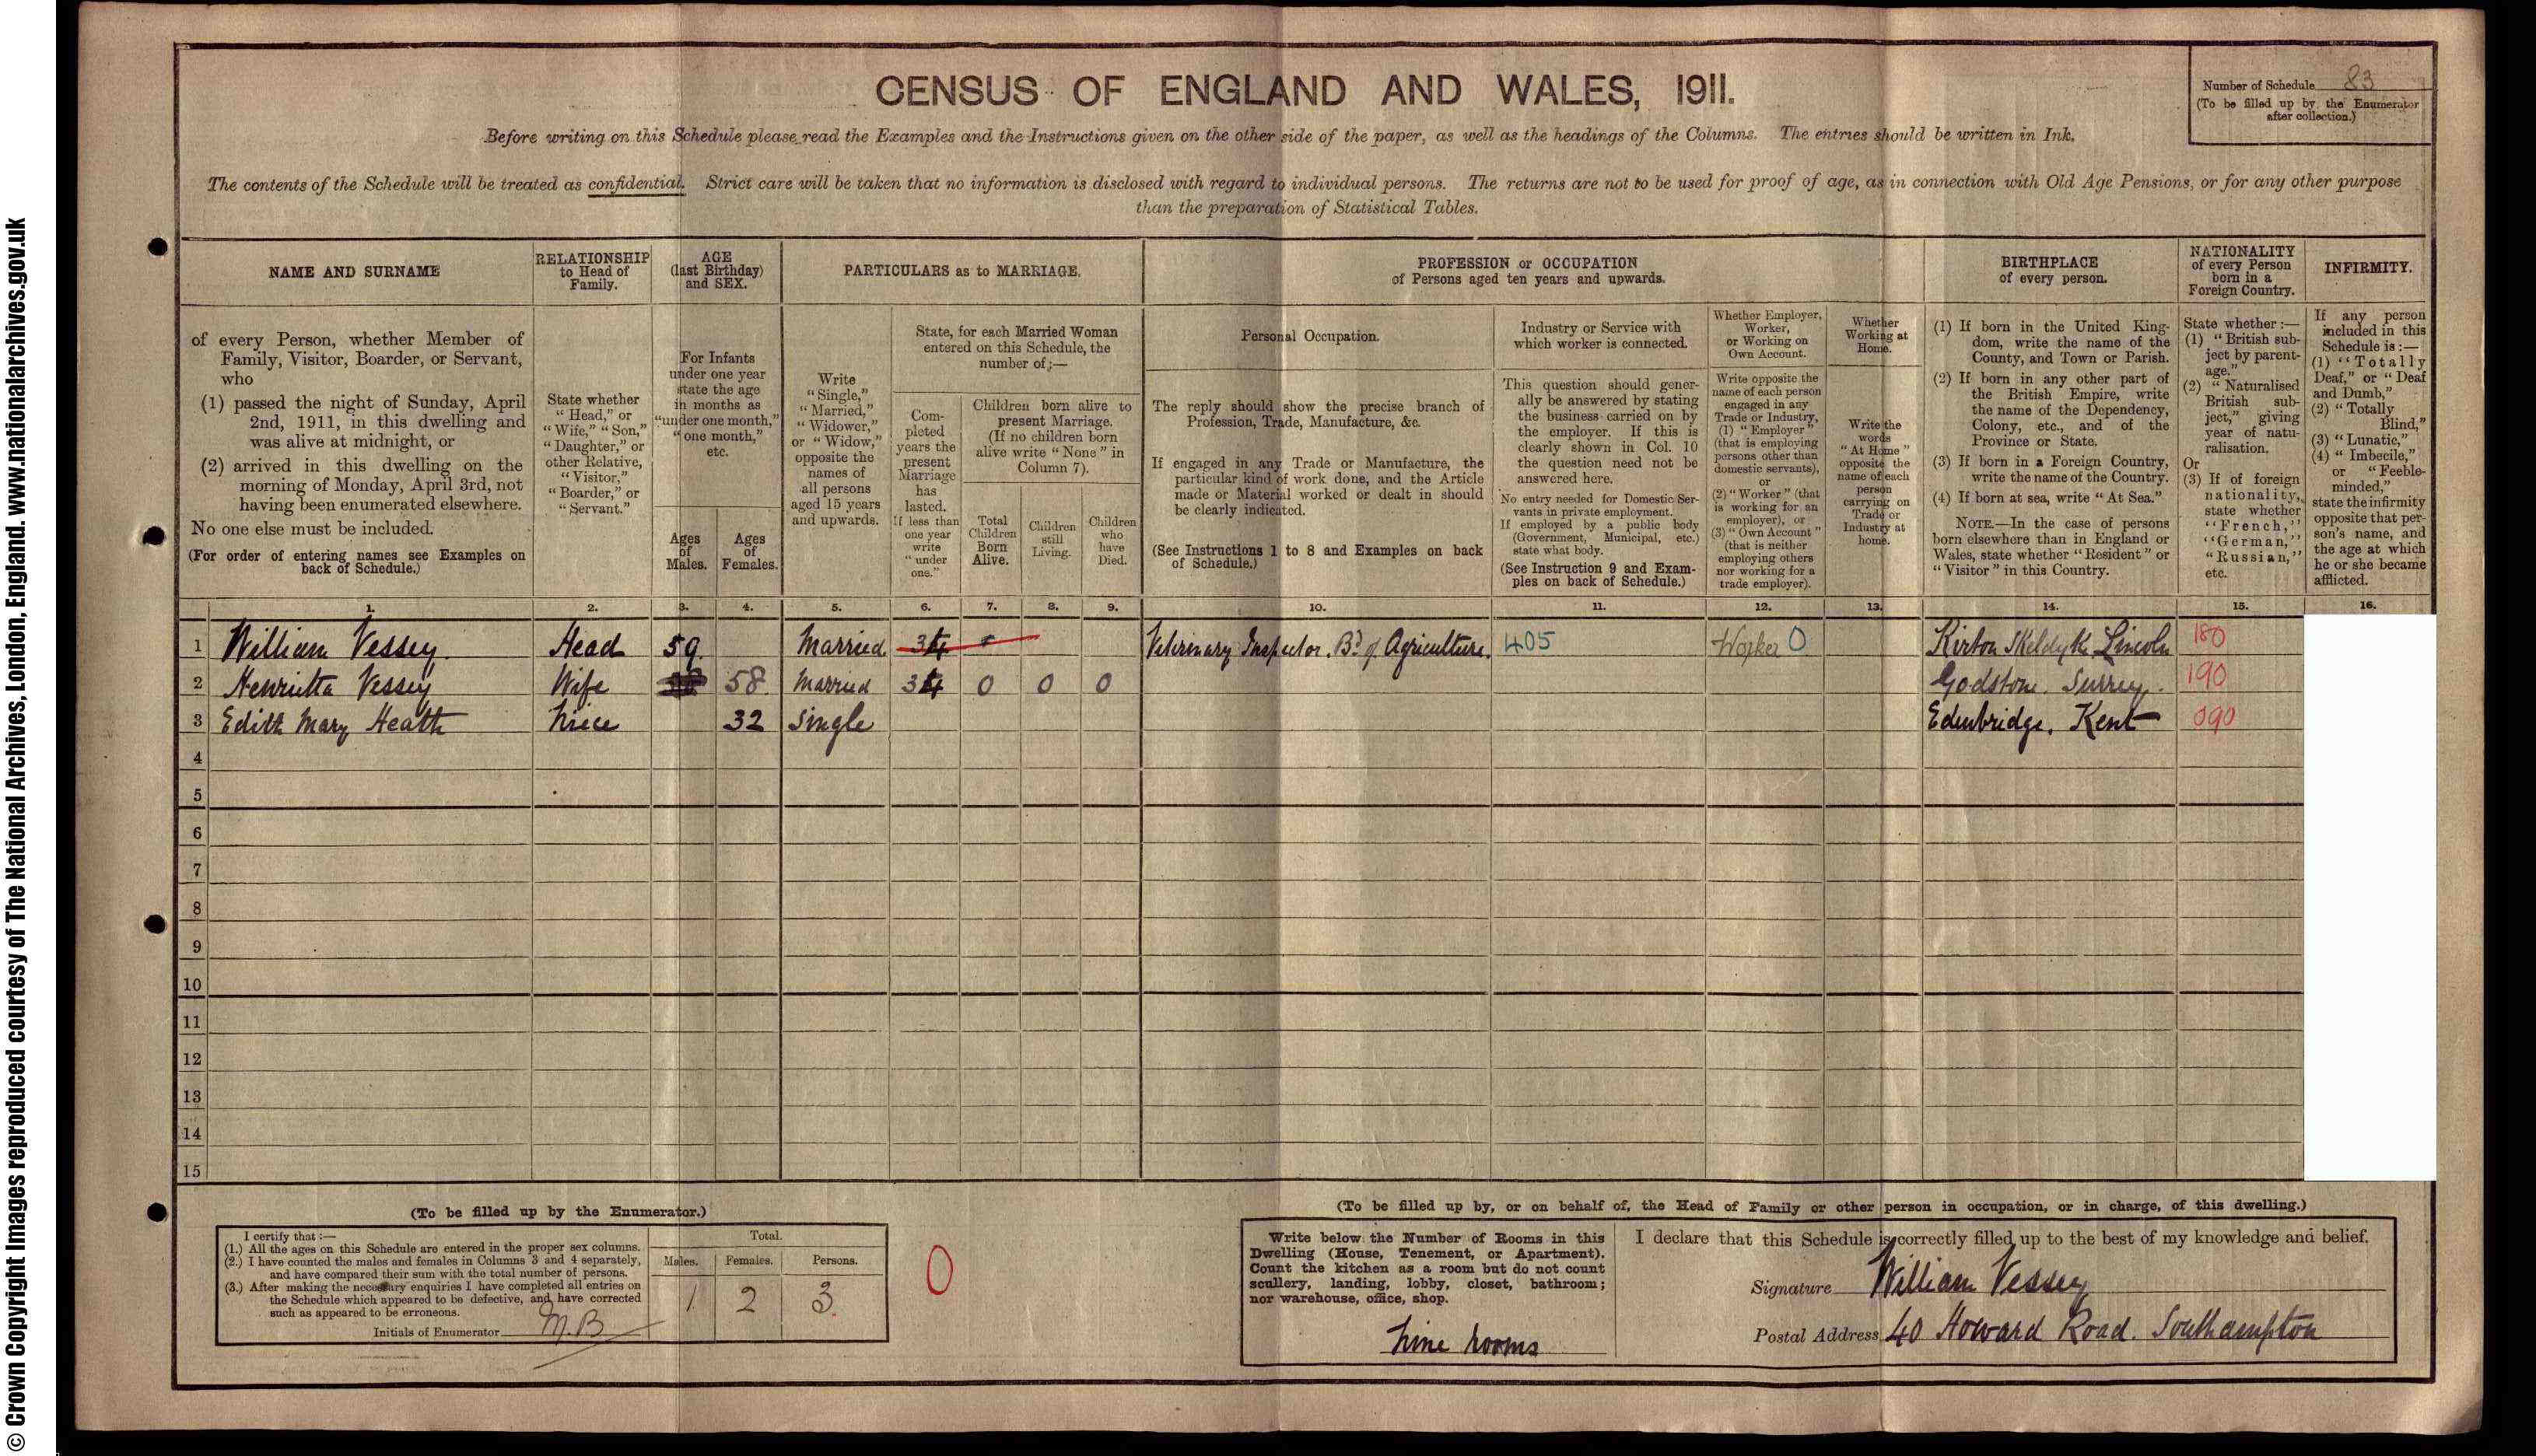 CENSUS OF ENGLAND AND WALES, 1911.
Number of Schedule 83
(To be filled up by the Enumerator
after collection.)
Before writing on this Schedule please read the Examples and the Instructions given on the other side of the paper, as well as the headings of the Columns. The entries should be written in Ink.
The contents of the Schedule will be treated as confidential. Strict care will be taken that no information is disclosed with regard to individual persons. The returns are not to be used for proof of age, as in connection with Old Age Pensions, or for any other purpose
than the preparation of Statistical Tables.
NAME AND SURNAME
of every Person, whether Member of
Family, Visitor, Boarder, or Servant,
who
(1) passed the night of Sunday, April
2nd, 1911, in this dwelling and
was alive at midnight, or
(2) arrived in this dwelling on the
morning of Monday, April 3rd, not
having been enumerated elsewhere.
No one else must be included.
(For order of entering names see Examples on
back of Schedule.)
RELATIONSHIP
to Head of
Family.
State whether
"Head," or
"Wife," "Son,"
"Daughter," or
other Relative,
"Visitor,"
"Boarder," or
"Servant."
AGE
(last Birthday)
and SEX.
For Infants
under one year
state the age
in months as
"under one month,"
"one month,"
etc.
Ages
of
Males.
Ages
of
Females.
PARTICULARS as to MARRIAGE.
Write
"Single,"
"Married,"
"Widower,"
or "Widow,"
opposite the
names of
all persons
aged 15 years
and upwards.
State, for each Married Woman
entered on this Schedule, the
number of:—
Com-
pleted
years the
present
Marriage
has
lasted.
If less than
one year
write
"under
one."
Children born alive to
present Marriage.
(If no children born
alive write "None" in
Column 7).
Total
Children
Born
Alive.
Children
still
Living.
Children
who
have
Died.
PROFESSION or OCCUPATION
of Persons aged ten years and upwards.
Personal Occupation.
The reply should show the precise branch of
Profession, Trade, Manufacture, &c.
If engaged in any Trade or Manufacture, the
particular kind of work done, and the Article
made or Material worked or dealt in should
be clearly indicated.
(See Instructions 1 to 8 and Examples on back
of Schedule.)
Industry or Service with
which worker is connected.
This question should gener-
ally be answered by stating
the business carried on by
the employer. If this is
clearly shown in Col. 10
the question need not be
answered here.
No entry needed for Domestic Ser-
vants in private employment.
If employed by a public body
(Government, Municipal, etc.)
state what body.
(See Instruction 9 and Exam-
ples on back of Schedule.)
Whether Employer,
Worker,
or Working on
Own Account.
Write opposite the
name of each person
engaged in any
Trade or Industry,
(1) "Employer"
(that is employing
persons other than
domestic servants),
or
(2) "Worker" (that
is working for an
employer), or
(3) "Own Account"
(that is neither
employing others
nor working for a
trade employer).
Whether
Working at
Home.
Write the
words
"At Home"
opposite the
name of each
person
carrying on
Trade or
Industry at
home.
BIRTHPLACE
of every person.
(1) If born in the United King-
dom, write the name of the
County, and Town or Parish.
(2) If born in any other part of
the British Empire, write
the name of the Dependency,
Colony, etc., and of the
Province or State.
(3) If born in a Foreign Country,
write the name of the Country.
(4) If born at sea, write "At Sea."
NOTE.—In the case of persons
born elsewhere than in England or
Wales, state whether "Resident" or
"Visitor" in this Country.
NATIONALITY
of every Person
born in a
Foreign Country.
State whether:—
(1) "British sub-
ject by parent-
age."
(2) "Naturalised
British sub-
ject," giving
year of natu-
ralisation.
Or
(3) If of foreign
nationality,
state whether
"French,"
"German,"
"Russian,"
etc.
INFIRMITY.
If any person
included in this
Schedule is:—
(1) "Totally
Deaf," or "Deaf
and Dumb,"
(2) "Totally
Blind,"
(3) "Lunatic,"
(4) "Imbecile,"
or "Feeble-
minded,"
state the infirmity
opposite that per-
son's name, and
the age at which
he or she became
afflicted.
1. 2. 3. 4. 5. 6. 7. 8. 9. 10. 11. 12. 13. 14. 15. 16.
1 William Vessey. Head 59. Married 34 Veterinary Inspector. Bd of Agriculture. 405 Worker 0 Kirton Skeldyke Lincoln 180
2 Henrietta Vessey Wife 58. Married 34 0 0 0 Godstone. Surrey. 190
3 Edith Mary Heath Niece 32 Single Edenbridge. Kent 090
4
5
6
7
8
9
10
11
12
13
14
15
(To be filled up by the Enumerator.)
I certify that:—
(1.) All the ages on this Schedule are entered in the proper sex columns.
(2.) I have counted the males and females in Columns 3 and 4 separately,
and have compared their sum with the total number of persons.
(3.) After making the necessary enquiries I have completed all entries on
the Schedule which appeared to be defective, and have corrected
such as appeared to be erroneous.
Initials of Enumerator M.B
Total.
Males. Females. Persons.
1 2 3
0
(To be filled up by, or on behalf of, the Head of Family or other person in occupation, or in charge, of this dwelling.)
Write below the Number of Rooms in this
Dwelling (House, Tenement, or Apartment).
Count the kitchen as a room but do not count
scullery, landing, lobby, closet, bathroom;
nor warehouse, office, shop.
Nine Rooms
I declare that this Schedule is correctly filled up to the best of my knowledge and belief.
Signature William Vessey
Postal Address 40 Howard Road. Southampton
© Crown Copyright Images reproduced courtesy of The National Archives, London, England. www.nationalarchives.gov.uk